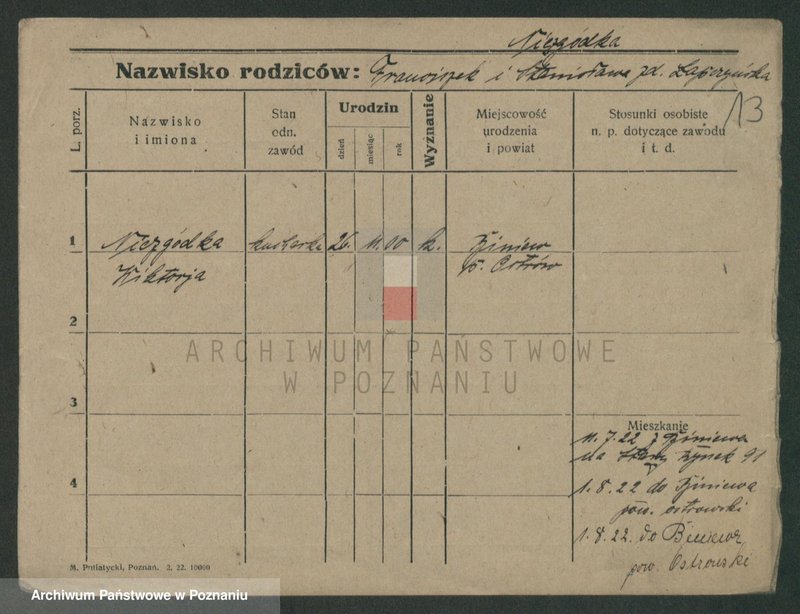 Niezgodka
Nazwisko rodziców: Franciszek i Stanisława zd.
13
L. porz.
Nazwisko
i imiona
Stan
odn.
zawód
Urodzin
dzień
miesiąc
rok
Wyznanie
Miejscowość
urodzenia
i powiat
Stosunki osobiste
n. p. dotyczące zawodu
i t. d.
1 Niezgódka kucharka 26. 11. 00 k.
Wiktorja p. Ostrów
2
ARCHIWUM PAŃSTWOWE
W POZNANIU
3
Mieszkanie
11.7.22 z
na Stary Rynek 91
4
1.8.22 do
pow. ostrowski
1.8.22. do
pow. Ostrowski
M. Putiatycki, Poznań. 2. 22. 10000
Archiwum Państwowe w Poznaniu